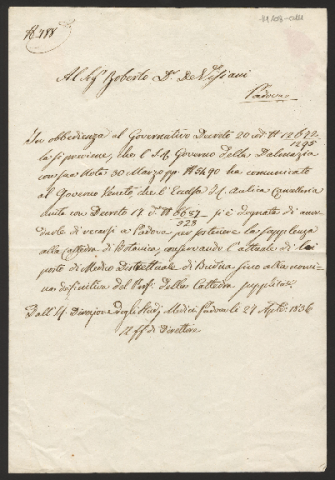 N. 188
Al Sig. Roberto Dr. De Visiani
Padova
In obbedienza al Governativo Decreto 20 cor. N 12672/1295
la si previene, che l'I. R. Governo della Dalmazia
con sua Nota 30 Marzo pp N 5490 ha comunicato
al Governo Veneto che l'Eccelsa I. R. Aulica Cancelleria
Unita con Decreto 17 N 6687/823 si è degnata di accor
darle di recarsi a Padova per sostenere la supplenza
alla Cattedra di Botanica, conservando l'attuale di lei
posto di Medico Distrettuale di Budua fino alla nomi
na definitiva del Prof. della Cattedra suppletoria.
Dall'I. R. Direzione degli Studj Medici Padova li 27 Aple 1836
Il ff. di Direttore